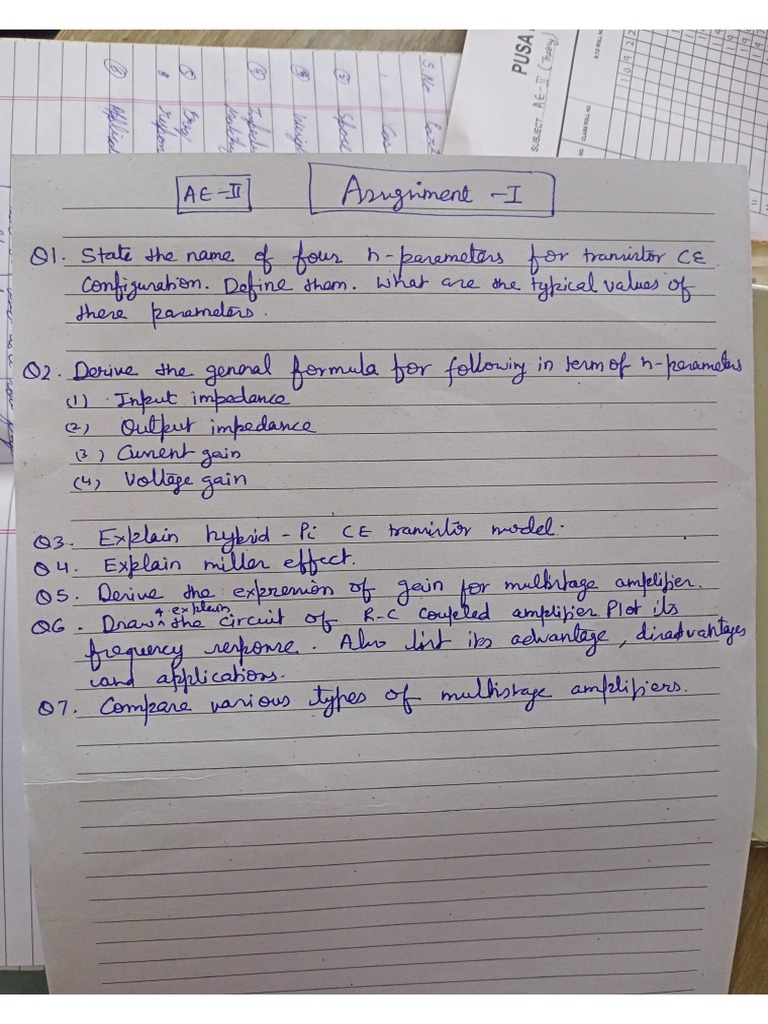 S.No.
PUSA
SUBJECT AE-II (Theory)
CLASS ROLL NO.
AE-II
Assignment - I
Q1. State the name of four h-parameters for transistor CE
Configuration. Define them. What are the typical values of
these parameters.
Q2. Derive the general formula for following in term of h-parameters
(1) Input impedance
(2) Output impedance
(3) Current gain
(4) Voltage gain
Q3. Explain hybrid - Pi CE transistor model.
Q4. Explain miller effect.
Q5. Derive the expression of gain for multistage amplifier.
Q6. Draw & explain the circuit of R-C coupled amplifier. Plot its
frequency response. Also list its advantage, disadvantages
and applications.
Q7. Compare various types of multistage amplifiers.